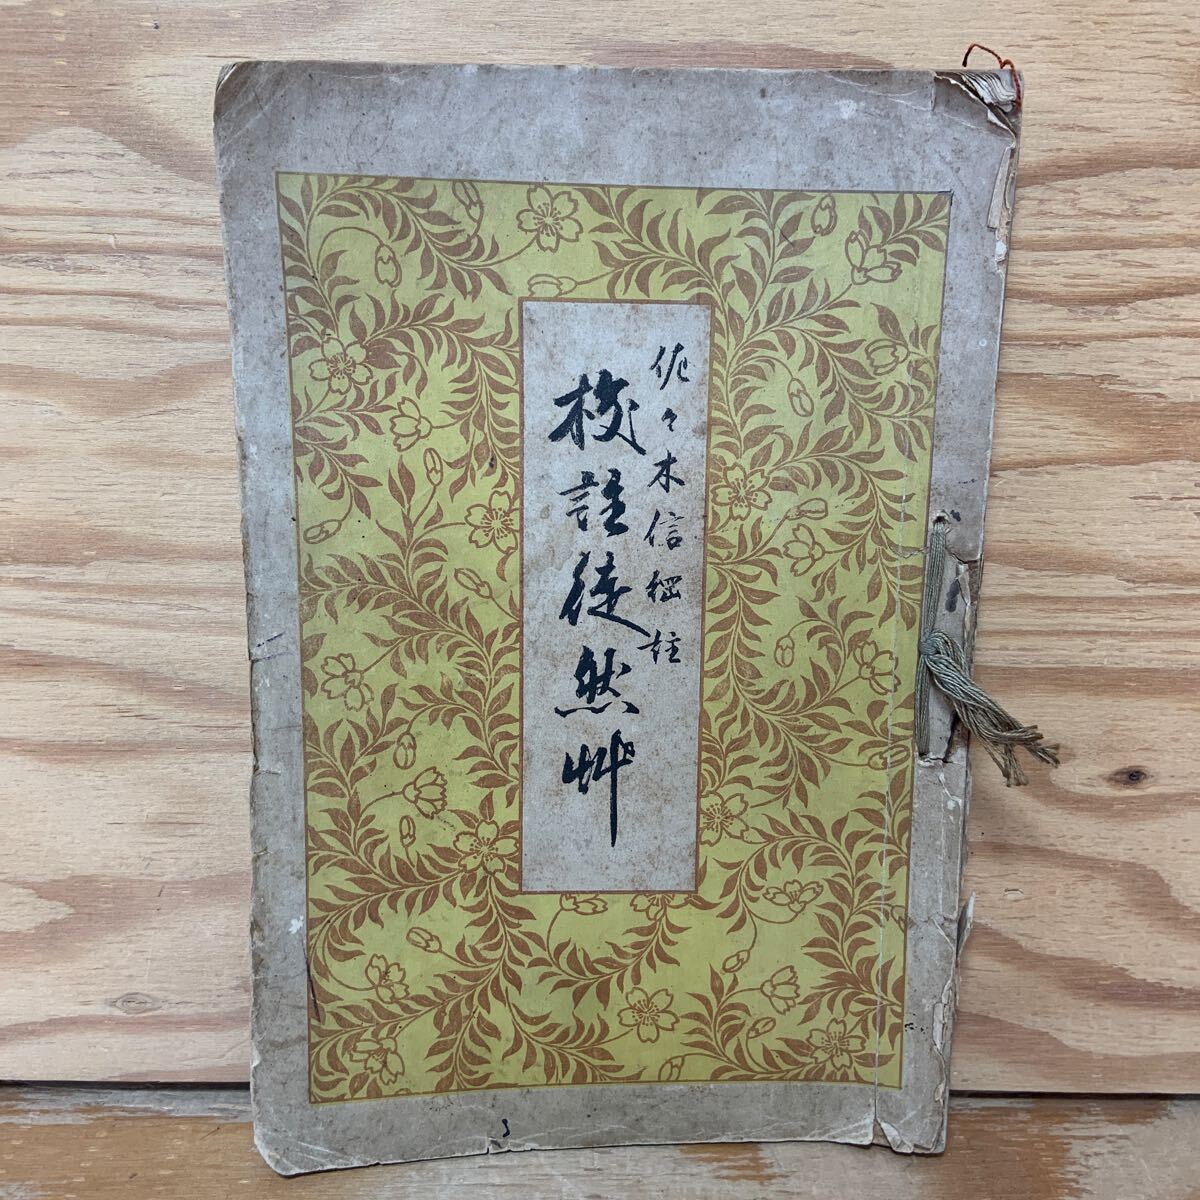 佐々木信綱註
校註徒然艸